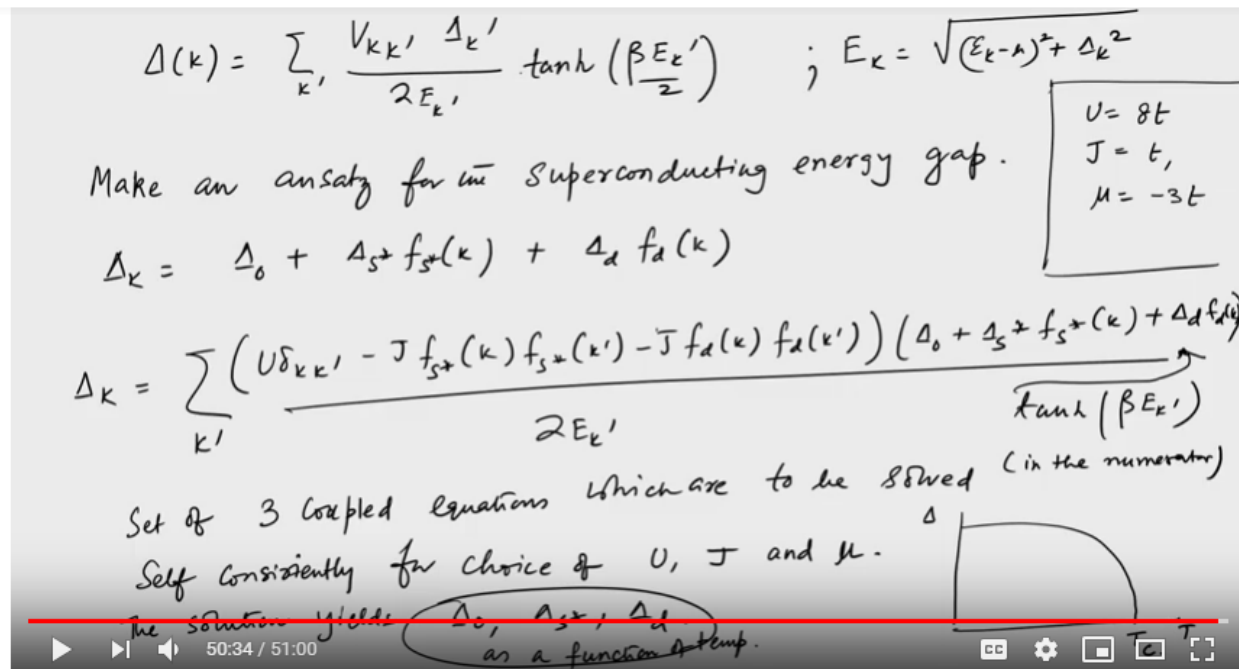 Δ(k) = Σ_k' V_kk' Δ_k' / 2E_k' tanh (βE_k'/2) ; E_k = √((ε_k-μ)² + Δ_k²)
U = 8t
J = t,
μ = -3t
Make an ansatz for the superconducting energy gap.
Δ_k = Δ_0 + Δ_s* f_s*(k) + Δ_d f_d(k)
Δ_k = Σ_k' (Uδ_kk' - J f_s*(k) f_s*(k') - J f_d(k) f_d(k')) (Δ_0 + Δ_s* f_s*(k) + Δ_d f_d(k) / 2E_k'
tanh (βE_k')
(in the numerator)
Set of 3 coupled equations which are to be solved
Self consistently for choice of U, J and μ.
The solution yields Δ_0, Δ_s*, Δ_d
as a function of temp.
Δ
T_c T
50:34 / 51:00
CC